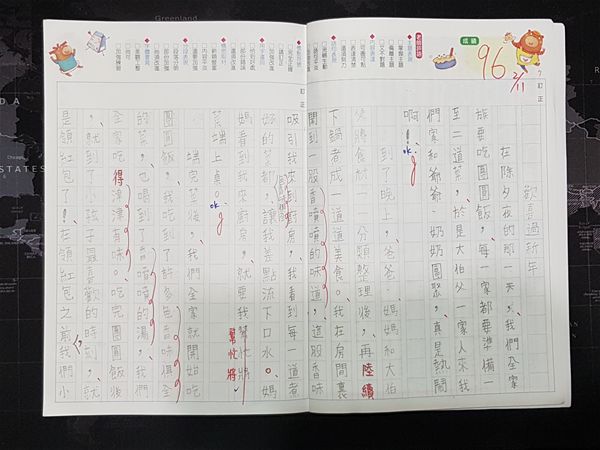 歡喜過新年
在除夕夜的那一天，我們全家
族要吃團圓飯，每一家都要準備一
至二道菜，於是大伯父一家人來我
們家和爺爺、奶奶團聚，真是熱鬧
啊！
到了晚上，爸爸、媽媽和大伯
父將食材一一分類整理後，再陸續
下鍋煮成一道道美食。我在房間裏
聞到一股香噴噴的味道，這股香味
吸引我來到廚房，我看到每一道煮
好的菜都讓我差點流下口水。媽
媽看到我來廚房，就要我幫忙將
菜端上桌。
端完菜後，我們全家就開始吃
團圓飯，我吃到了許多色香味俱全
的菜，也喝到了香噴噴的湯，我們
全家吃得津津有味。吃完團圓飯後
，就到了小孩子最喜歡的時刻，就
是領紅包了！在領紅包之前我們小
老師評語
成績
96
2/11
訂正
訂正
ok
ok
陸續
幫忙將
得